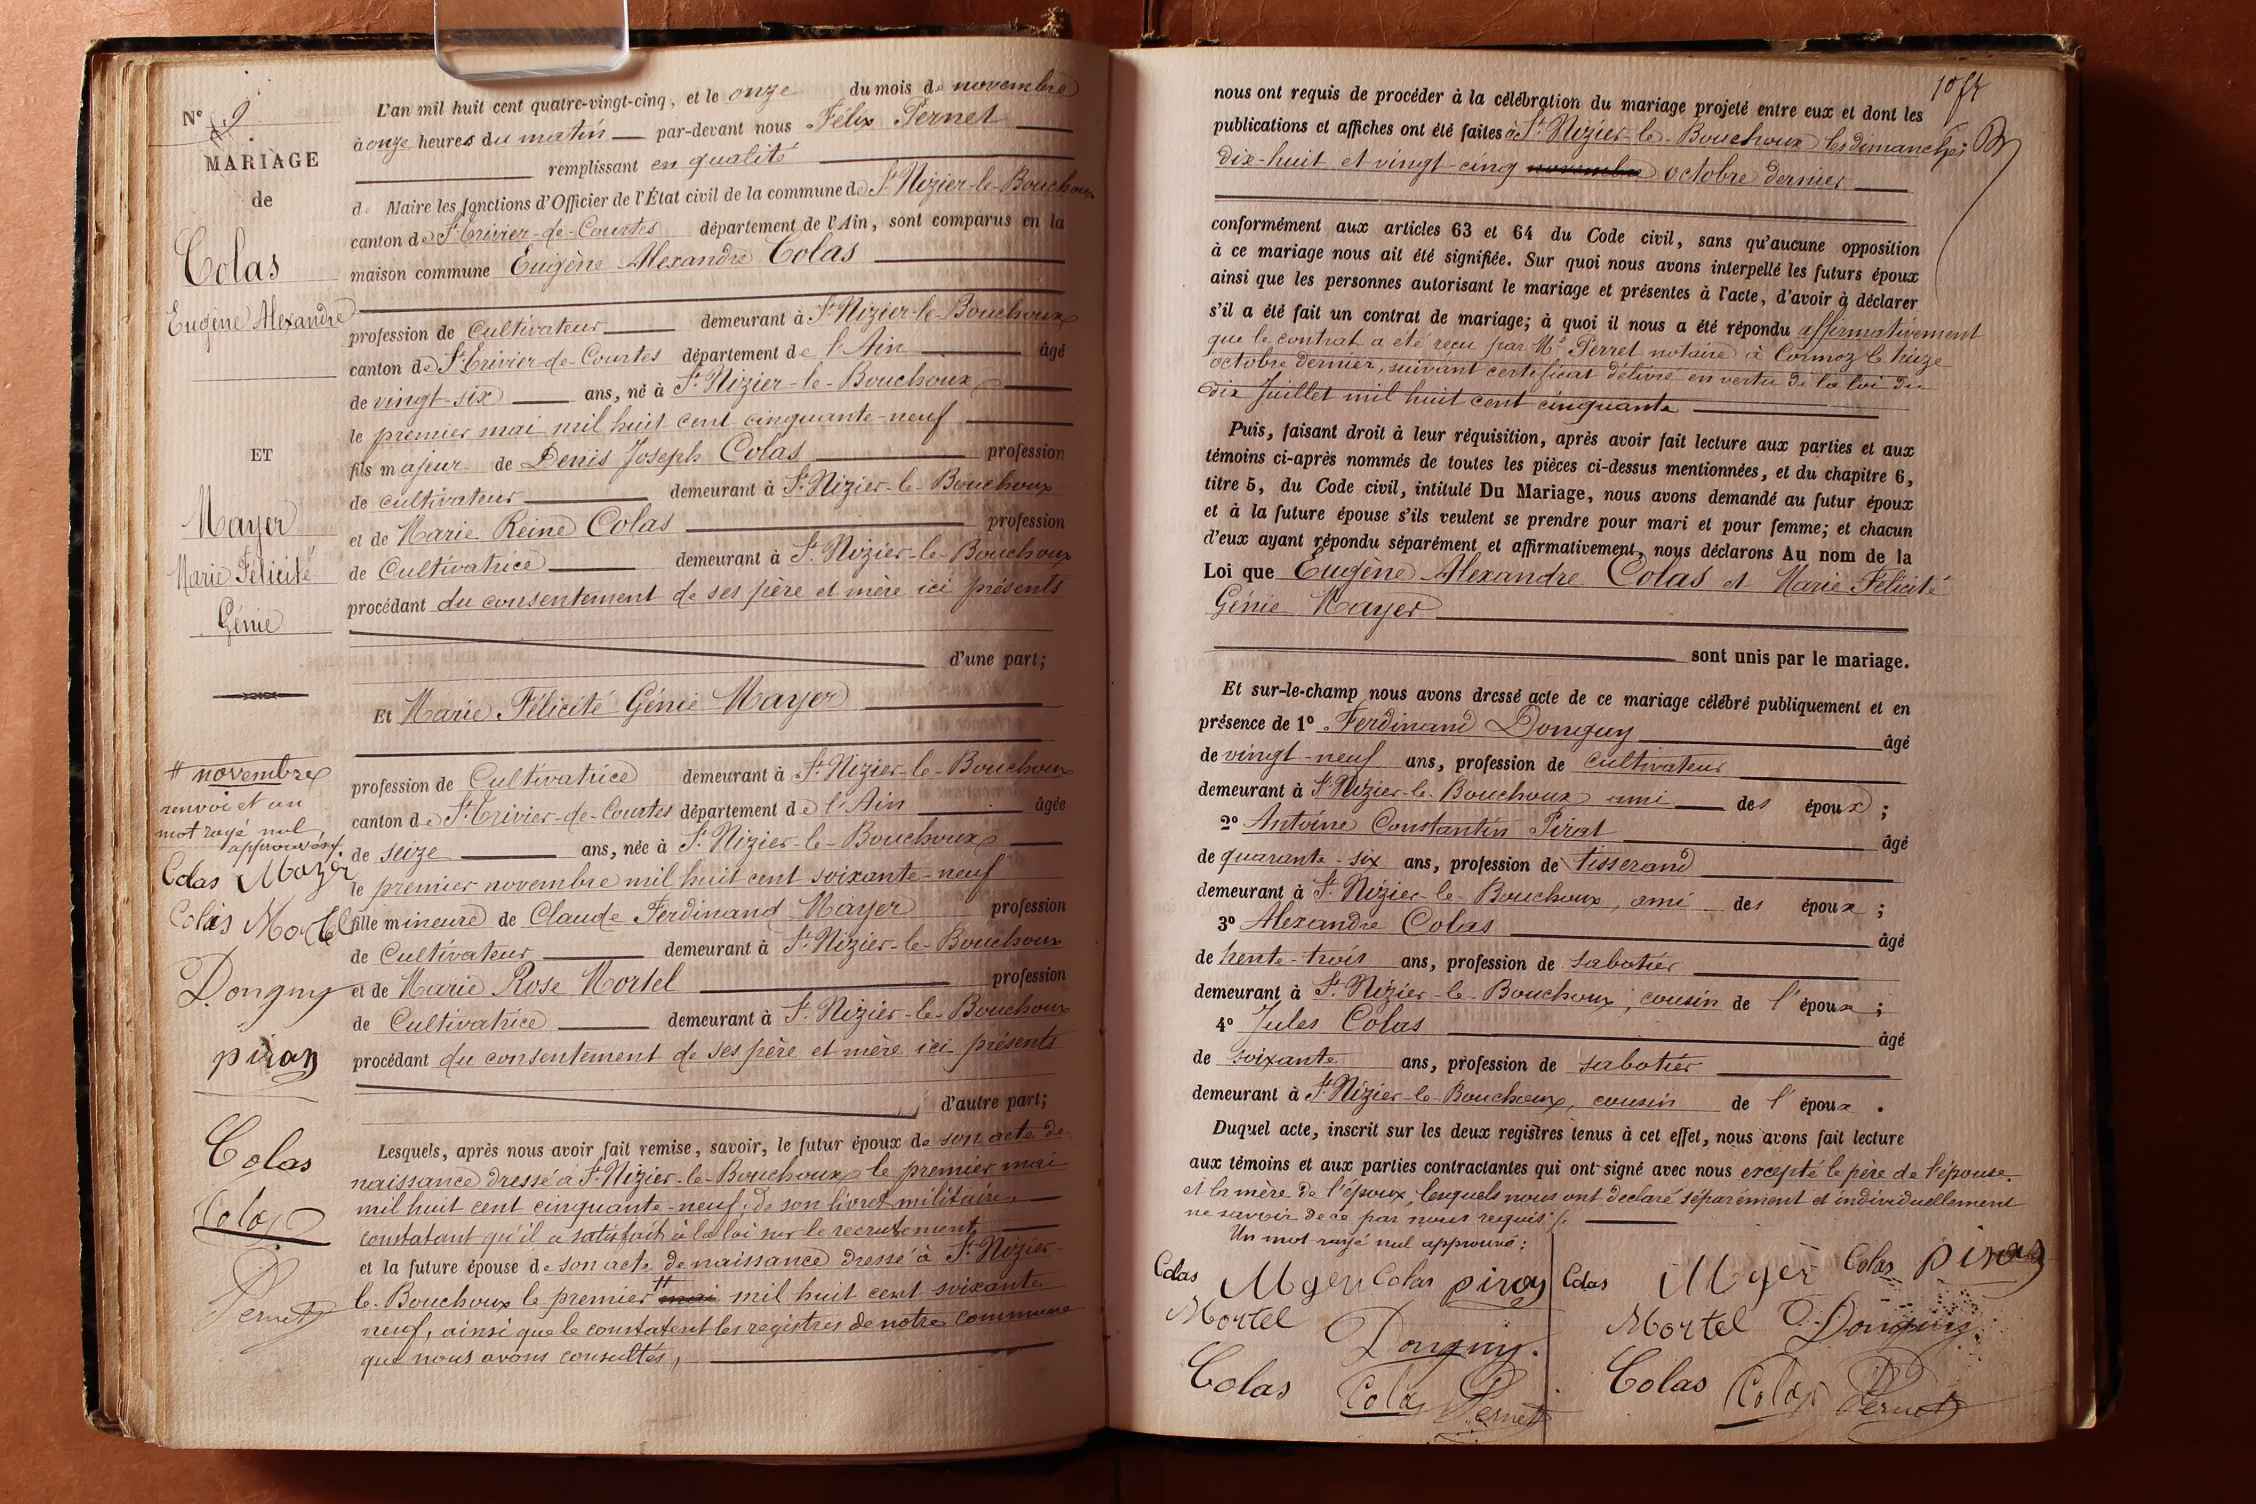 N° 9
MARIAGE
de
Colas
Eugène Alexandre
ET
Mayer
Marie Félicité
Génie
# novembre
renvoi et un
mot rayé nul
approuvés.
Colas Mayer
Colas Mortel
Donguy
piray
Colas
Colas
Pernet
L'an mil huit cent quatre-vingt-cinq, et le onze du mois de novembre
à onze heures du matin par-devant nous Félix Pernet
remplissant en qualité
de Maire les fonctions d'Officier de l'État civil de la commune de St Nizier-le-Bouchoux
canton de St Trivier-de-Courtes département de l'Ain, sont comparus en la
maison commune Eugène Alexandre Colas
profession de Cultivateur demeurant à St Nizier-le-Bouchoux
canton de St Trivier-de-Courtes département de l'Ain âgé
de vingt-six ans, né à St Nizier-le-Bouchoux
le premier mai mil huit cent cinquante-neuf
fils majeur de Denis Joseph Colas profession
de cultivateur demeurant à St Nizier-le-Bouchoux
et de Marie Reine Colas profession
de Cultivatrice demeurant à St Nizier-le-Bouchoux
procédant du consentement de ses père et mère ici présents
d'une part;
Et Marie Félicité Génie Mayer
profession de Cultivatrice demeurant à St Nizier-le-Bouchoux
canton de St Trivier-de-Courtes département de l'Ain âgée
de seize ans, née à St Nizier-le-Bouchoux
le premier novembre mil huit cent soixante-neuf
fille mineure de Claude Ferdinand Mayer profession
de Cultivateur demeurant à St Nizier-le-Bouchoux
et de Marie Rose Mortel profession
de Cultivatrice demeurant à St Nizier-le-Bouchoux
procédant du consentement de ses père et mère ici présents
d'autre part;
Lesquels, après nous avoir fait remise, savoir, le futur époux de son acte de
naissance dressé à St Nizier-le-Bouchoux le premier mai
mil huit cent cinquante-neuf; de son livret militaire
constatant qu'il a satisfait à la loi sur le recrutement
et la future épouse de son acte de naissance dressé à St Nizier-
le-Bouchoux le premier # mai mil huit cent soixante
neuf, ainsi que le constatent les registres de notre commune
que nous avons consultés,
nous ont requis de procéder à la célébration du mariage projeté entre eux et dont les
publications et affiches ont été faites à St Nizier-le-Bouchoux les dimanches
dix-huit et vingt-cinq novembre octobre dernier
conformément aux articles 63 et 64 du Code civil, sans qu'aucune opposition
à ce mariage nous ait été signifiée. Sur quoi nous avons interpellé les futurs époux
ainsi que les personnes autorisant le mariage et présentes à l'acte, d'avoir à déclarer
s'il a été fait un contrat de mariage; à quoi il nous a été répondu affirmativement
que le contrat a été reçu par Me Perret notaire à Cormoz le treize
octobre dernier, suivant certificat délivré en vertu de la loi du
dix Juillet mil huit cent cinquante
Puis, faisant droit à leur réquisition, après avoir fait lecture aux parties et aux
témoins ci-après nommés de toutes les pièces ci-dessus mentionnées, et du chapitre 6,
titre 5, du Code civil, intitulé Du Mariage, nous avons demandé au futur époux
et à la future épouse s'ils veulent se prendre pour mari et pour femme; et chacun
d'eux ayant répondu séparément et affirmativement, nous déclarons Au nom de la
Loi que Eugène Alexandre Colas et Marie Félicité
Génie Mayer
sont unis par le mariage.
Et sur-le-champ nous avons dressé acte de ce mariage célébré publiquement et en
présence de 1° Ferdinand Donguy âgé
de vingt-neuf ans, profession de cultivateur
demeurant à St Nizier-le-Bouchoux ami des époux;
2° Antoine Constantin Pirat âgé
de quarante-six ans, profession de tisserand
demeurant à St Nizier-le-Bouchoux, ami des époux;
3° Alexandre Colas âgé
de trente-trois ans, profession de sabotier
demeurant à St Nizier-le-Bouchoux, cousin de l'époux;
4° Jules Colas âgé
de soixante ans, profession de sabotier
demeurant à St Nizier-le-Bouchoux, cousin de l'époux.
Duquel acte, inscrit sur les deux registres tenus à cet effet, nous avons fait lecture
aux témoins et aux parties contractantes qui ont signé avec nous excepté le père de l'épouse
et la mère de l'époux, lesquels nous ont déclaré séparément et individuellement
ne savoir de ce par nous requis ./.
Un mot rayé nul approuvé:
Colas Mayer Colas piray
Mortel Donguy.
Colas Colas Pernet
Colas Mayer Colas piray
Mortel Donguy
Colas Colas Pernet